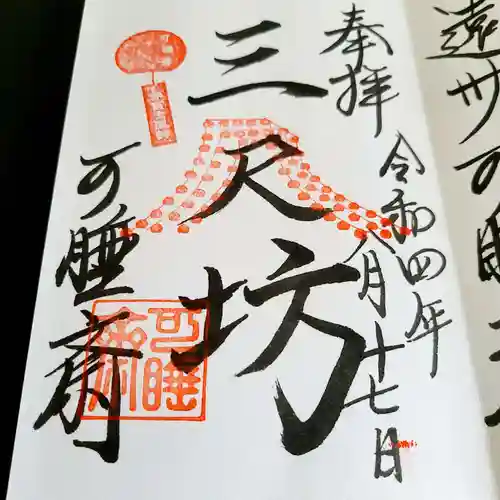 遠州可睡三
奉拝
令和四年
八月十七日
三尺坊
可睡斎
可睡